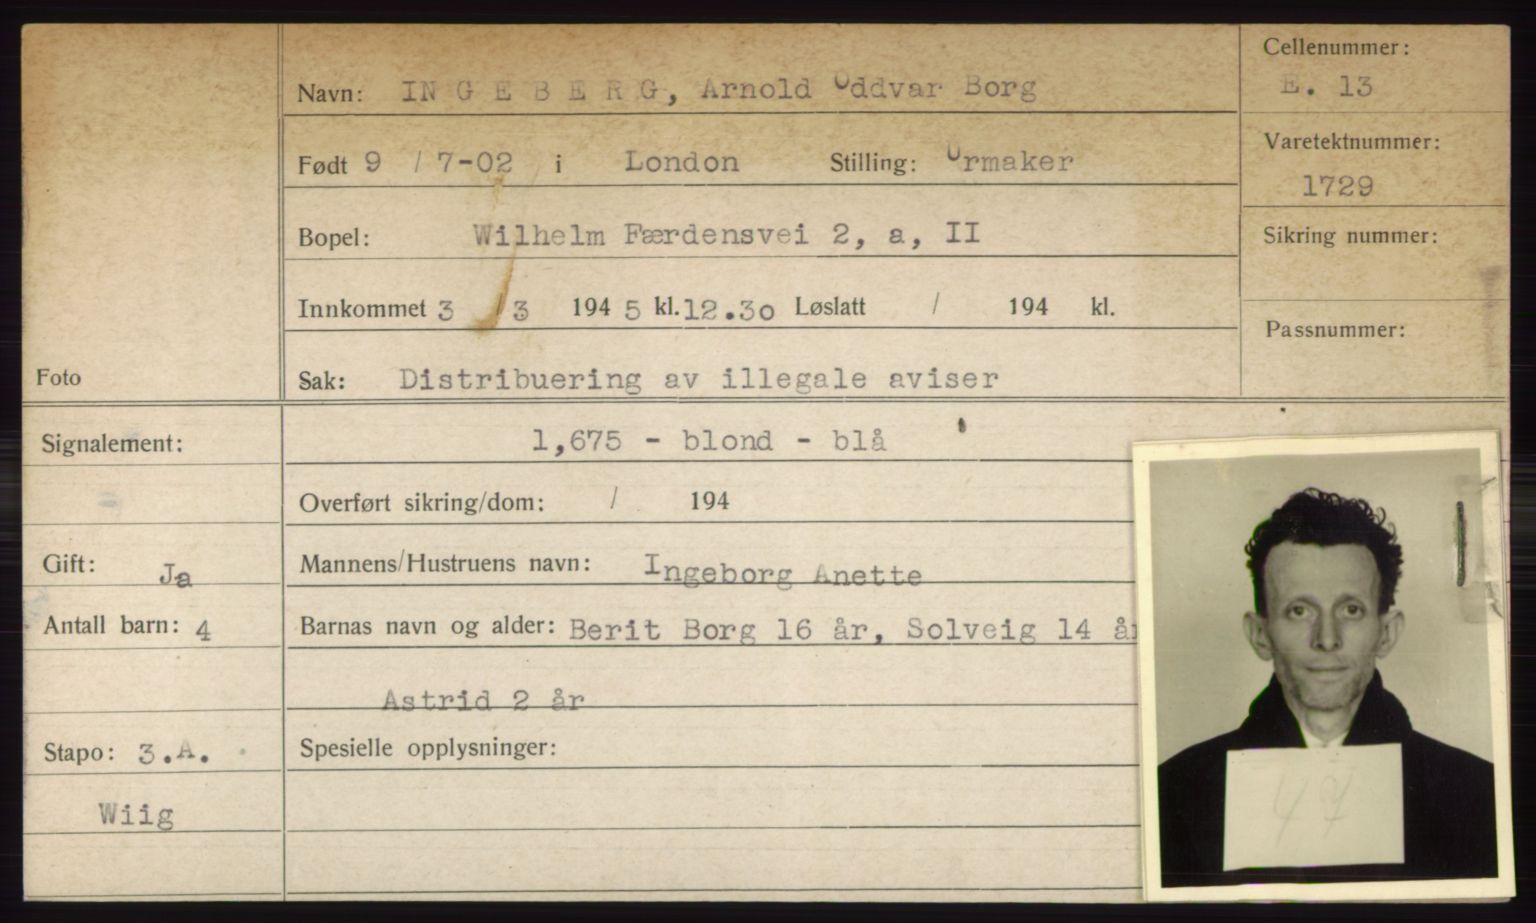 Navn: INGEBERG, Arnold Oddvar Borg
Cellenummer:
E. 13
Født 9 / 7-02 i London Stilling: Urmaker
Varetektnummer:
1729
Bopel: Wilhelm Færdensvei 2, a, II
Sikring nummer:
Innkommet 3 / 3 1945 kl. 12.30 Løslatt / 194 kl.
Passnummer:
Foto
Sak: Distribuering av illegale aviser
Signalement: 1,675 - blond - blå
Overført sikring/dom: / 194
Gift: Ja
Mannens/Hustruens navn: Ingeborg Anette
Antall barn: 4
Barnas navn og alder: Berit Borg 16 år, Solveig 14 år
Astrid 2 år
Stapo: 3.A.
Spesielle opplysninger:
Wiig
47